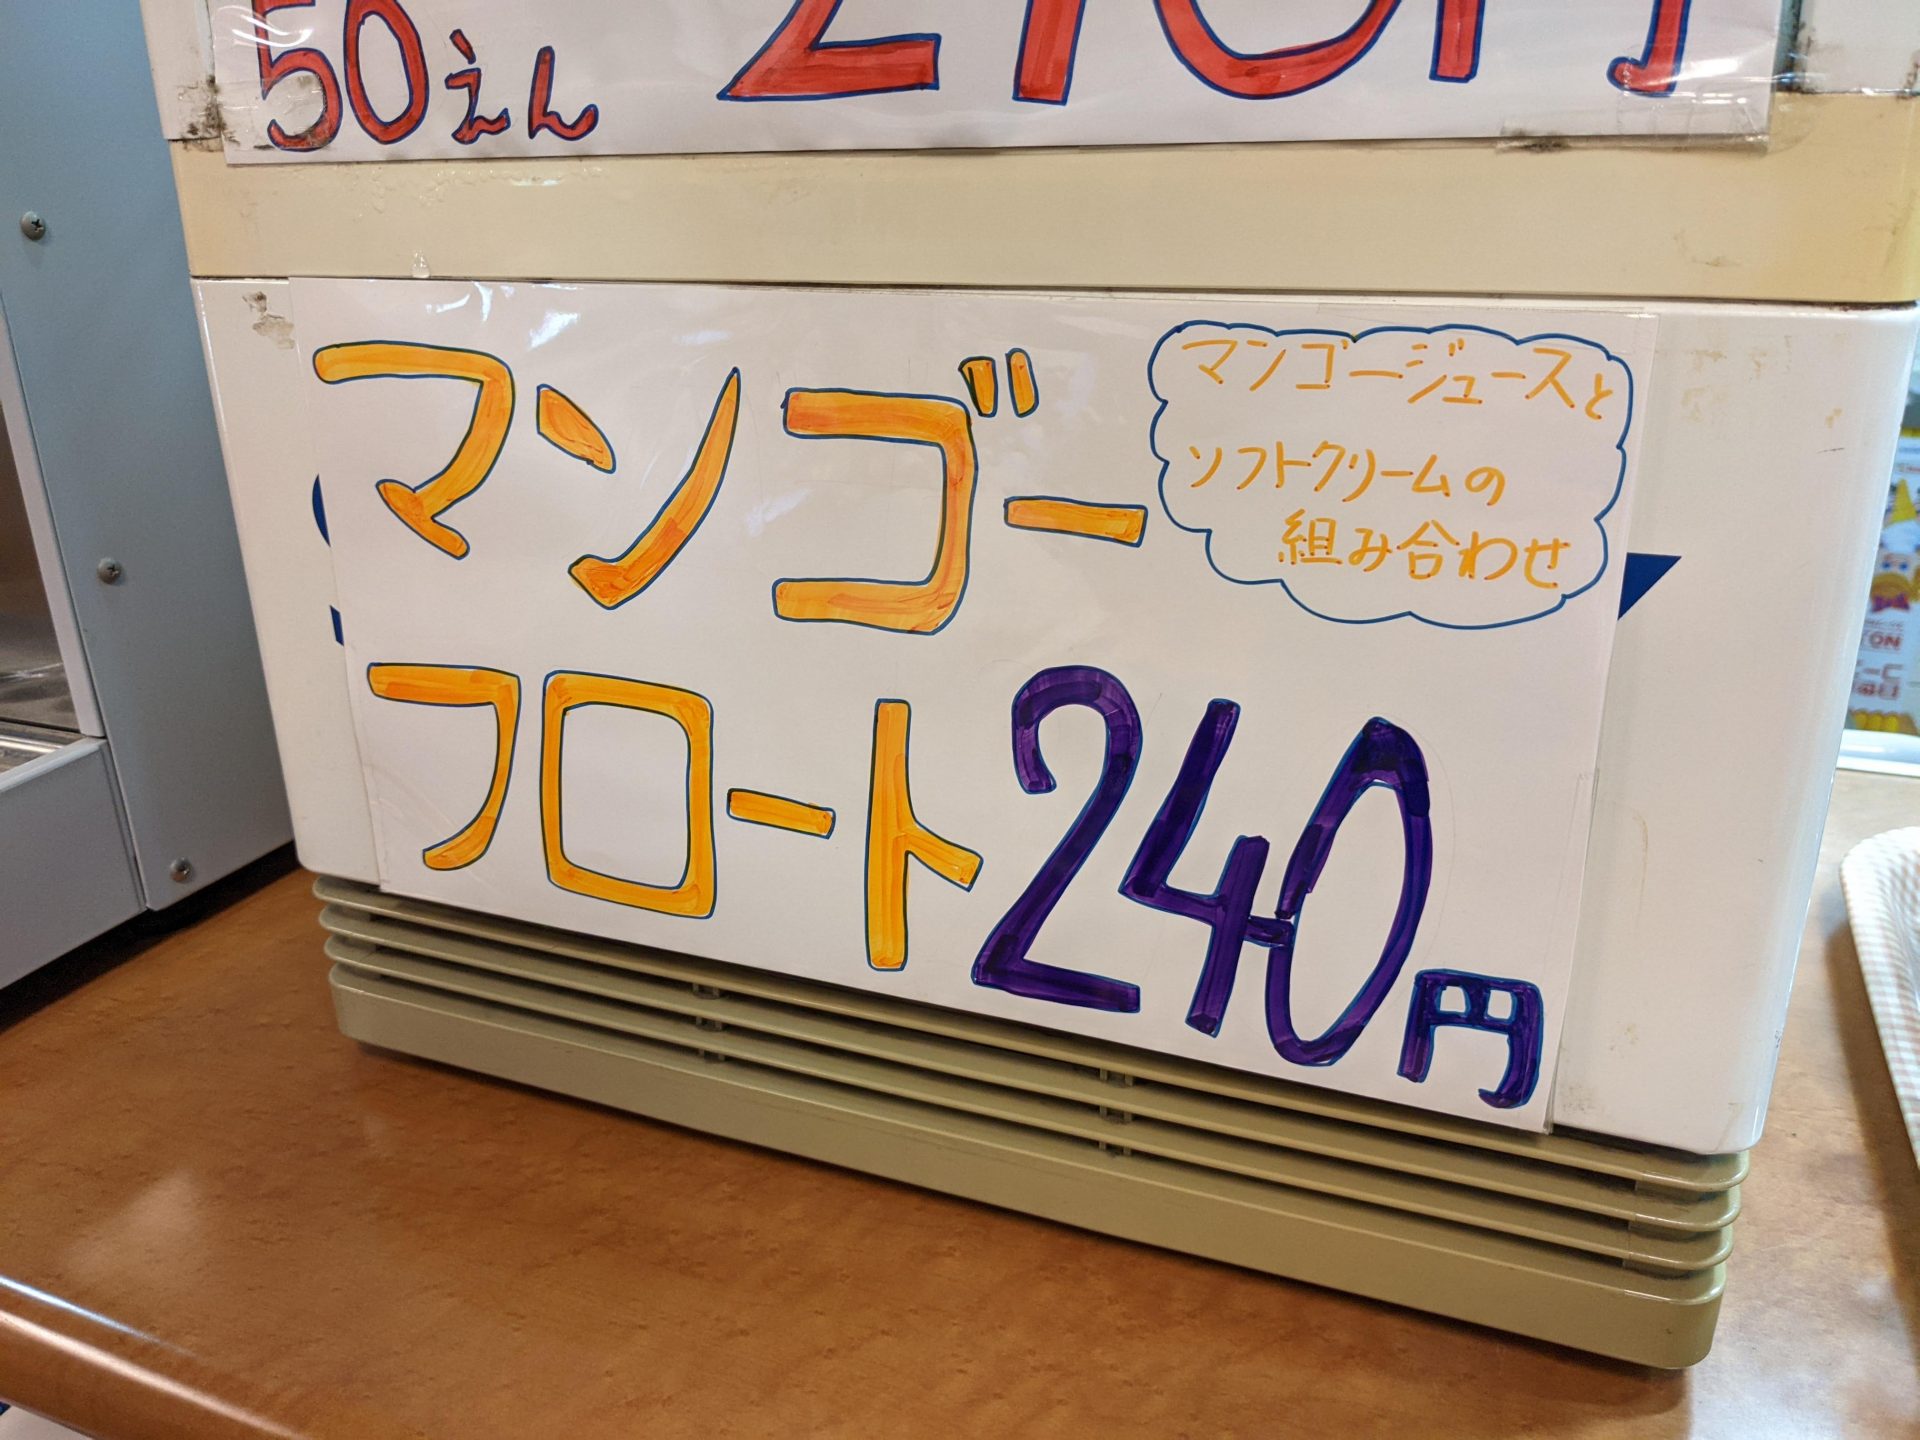 50えん
マンゴー
マンゴージュースと
ソフトクリームの
組み合わせ
フロート240円